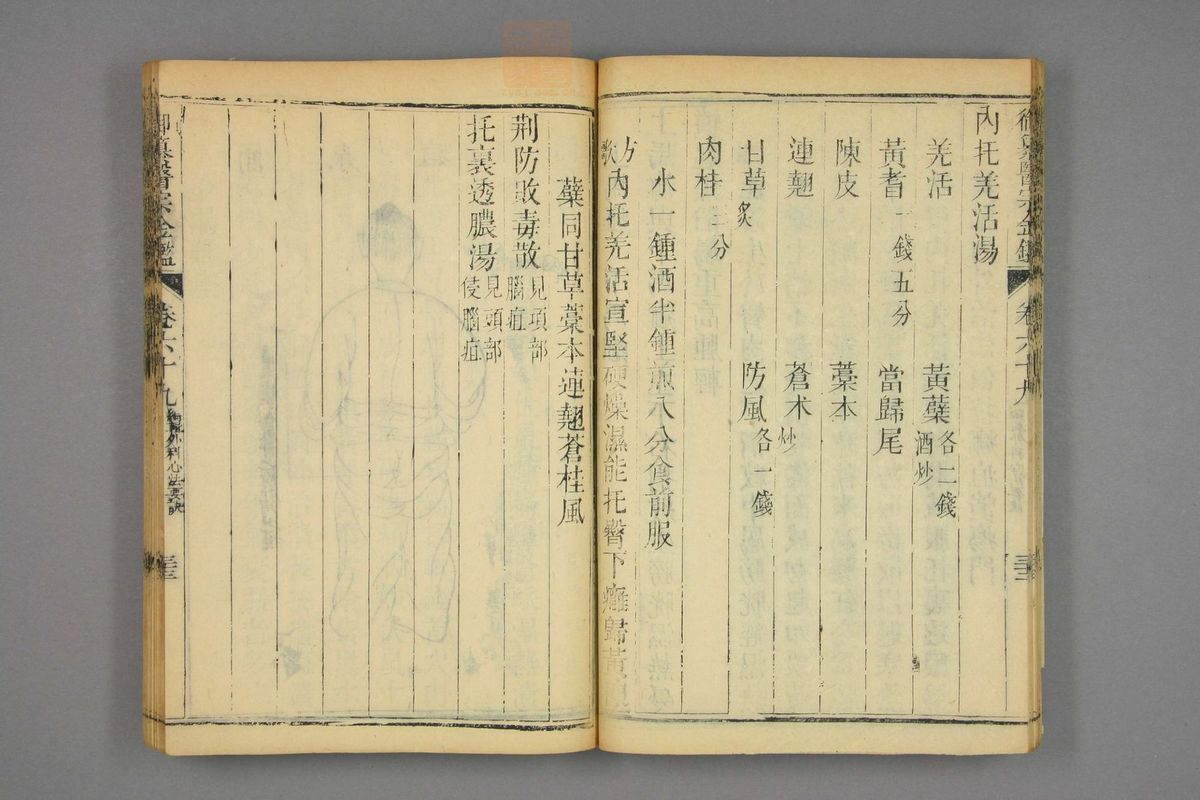 內托羌活湯
羌活 黃蘗各二錢酒炒
黃耆一錢五分 當歸尾
陳皮 藁本
連翹 蒼术炒
甘草炙 防風各一錢
肉桂三分
水一鍾酒半鍾煎八分食前服
方歌 內托羌活宣堅硬燥濕能托臀下癰歸黃
蘗同甘草藁本連翹蒼桂風
荆防敗毒散見項部腦疽
托裏透膿湯見頭部侵腦疽
御纂醫宗金鑑 卷六十九 編輯外科心法要訣 三三